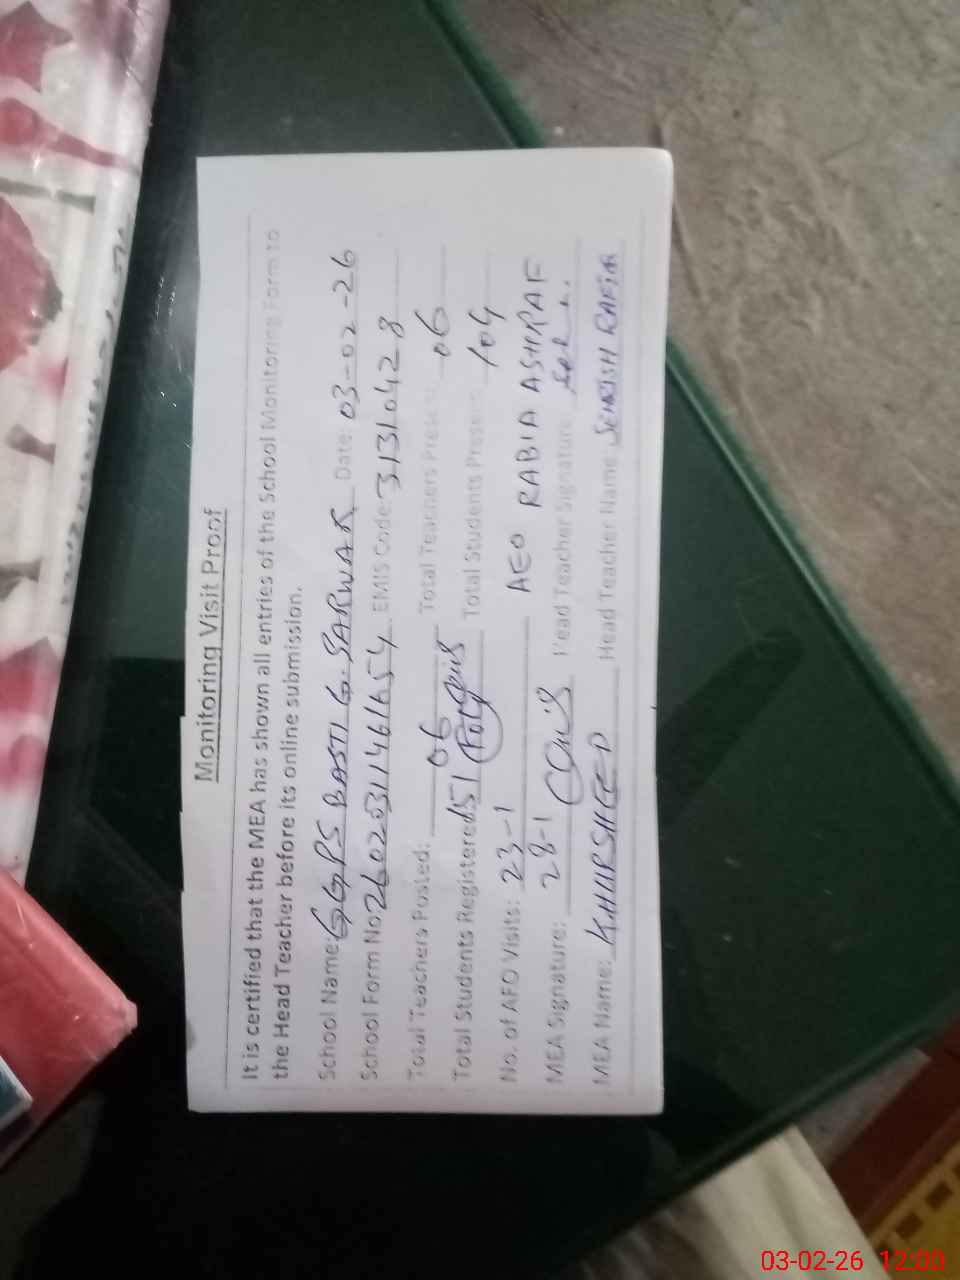 Monitoring Visit Proof
It is certified that the MEA has shown all entries of the School Monitoring Form to
the Head Teacher before its online submission.
School Name: GGPS BASTI G. SARWAR Date: 03-02-26
School Form No: EMIS Code: 31310428
Total Teachers Posted: 06 Total Teachers Present: 06
Total Students Registered: 151 Total Students Present: 104
No. of AEO Visits: 23-1 AEO RABIA ASHRAF
28-1
MEA Signature: Head Teacher Signature:
MEA Name: KHURSHEED Head Teacher Name: SEHRISH
03-02-26 12:00